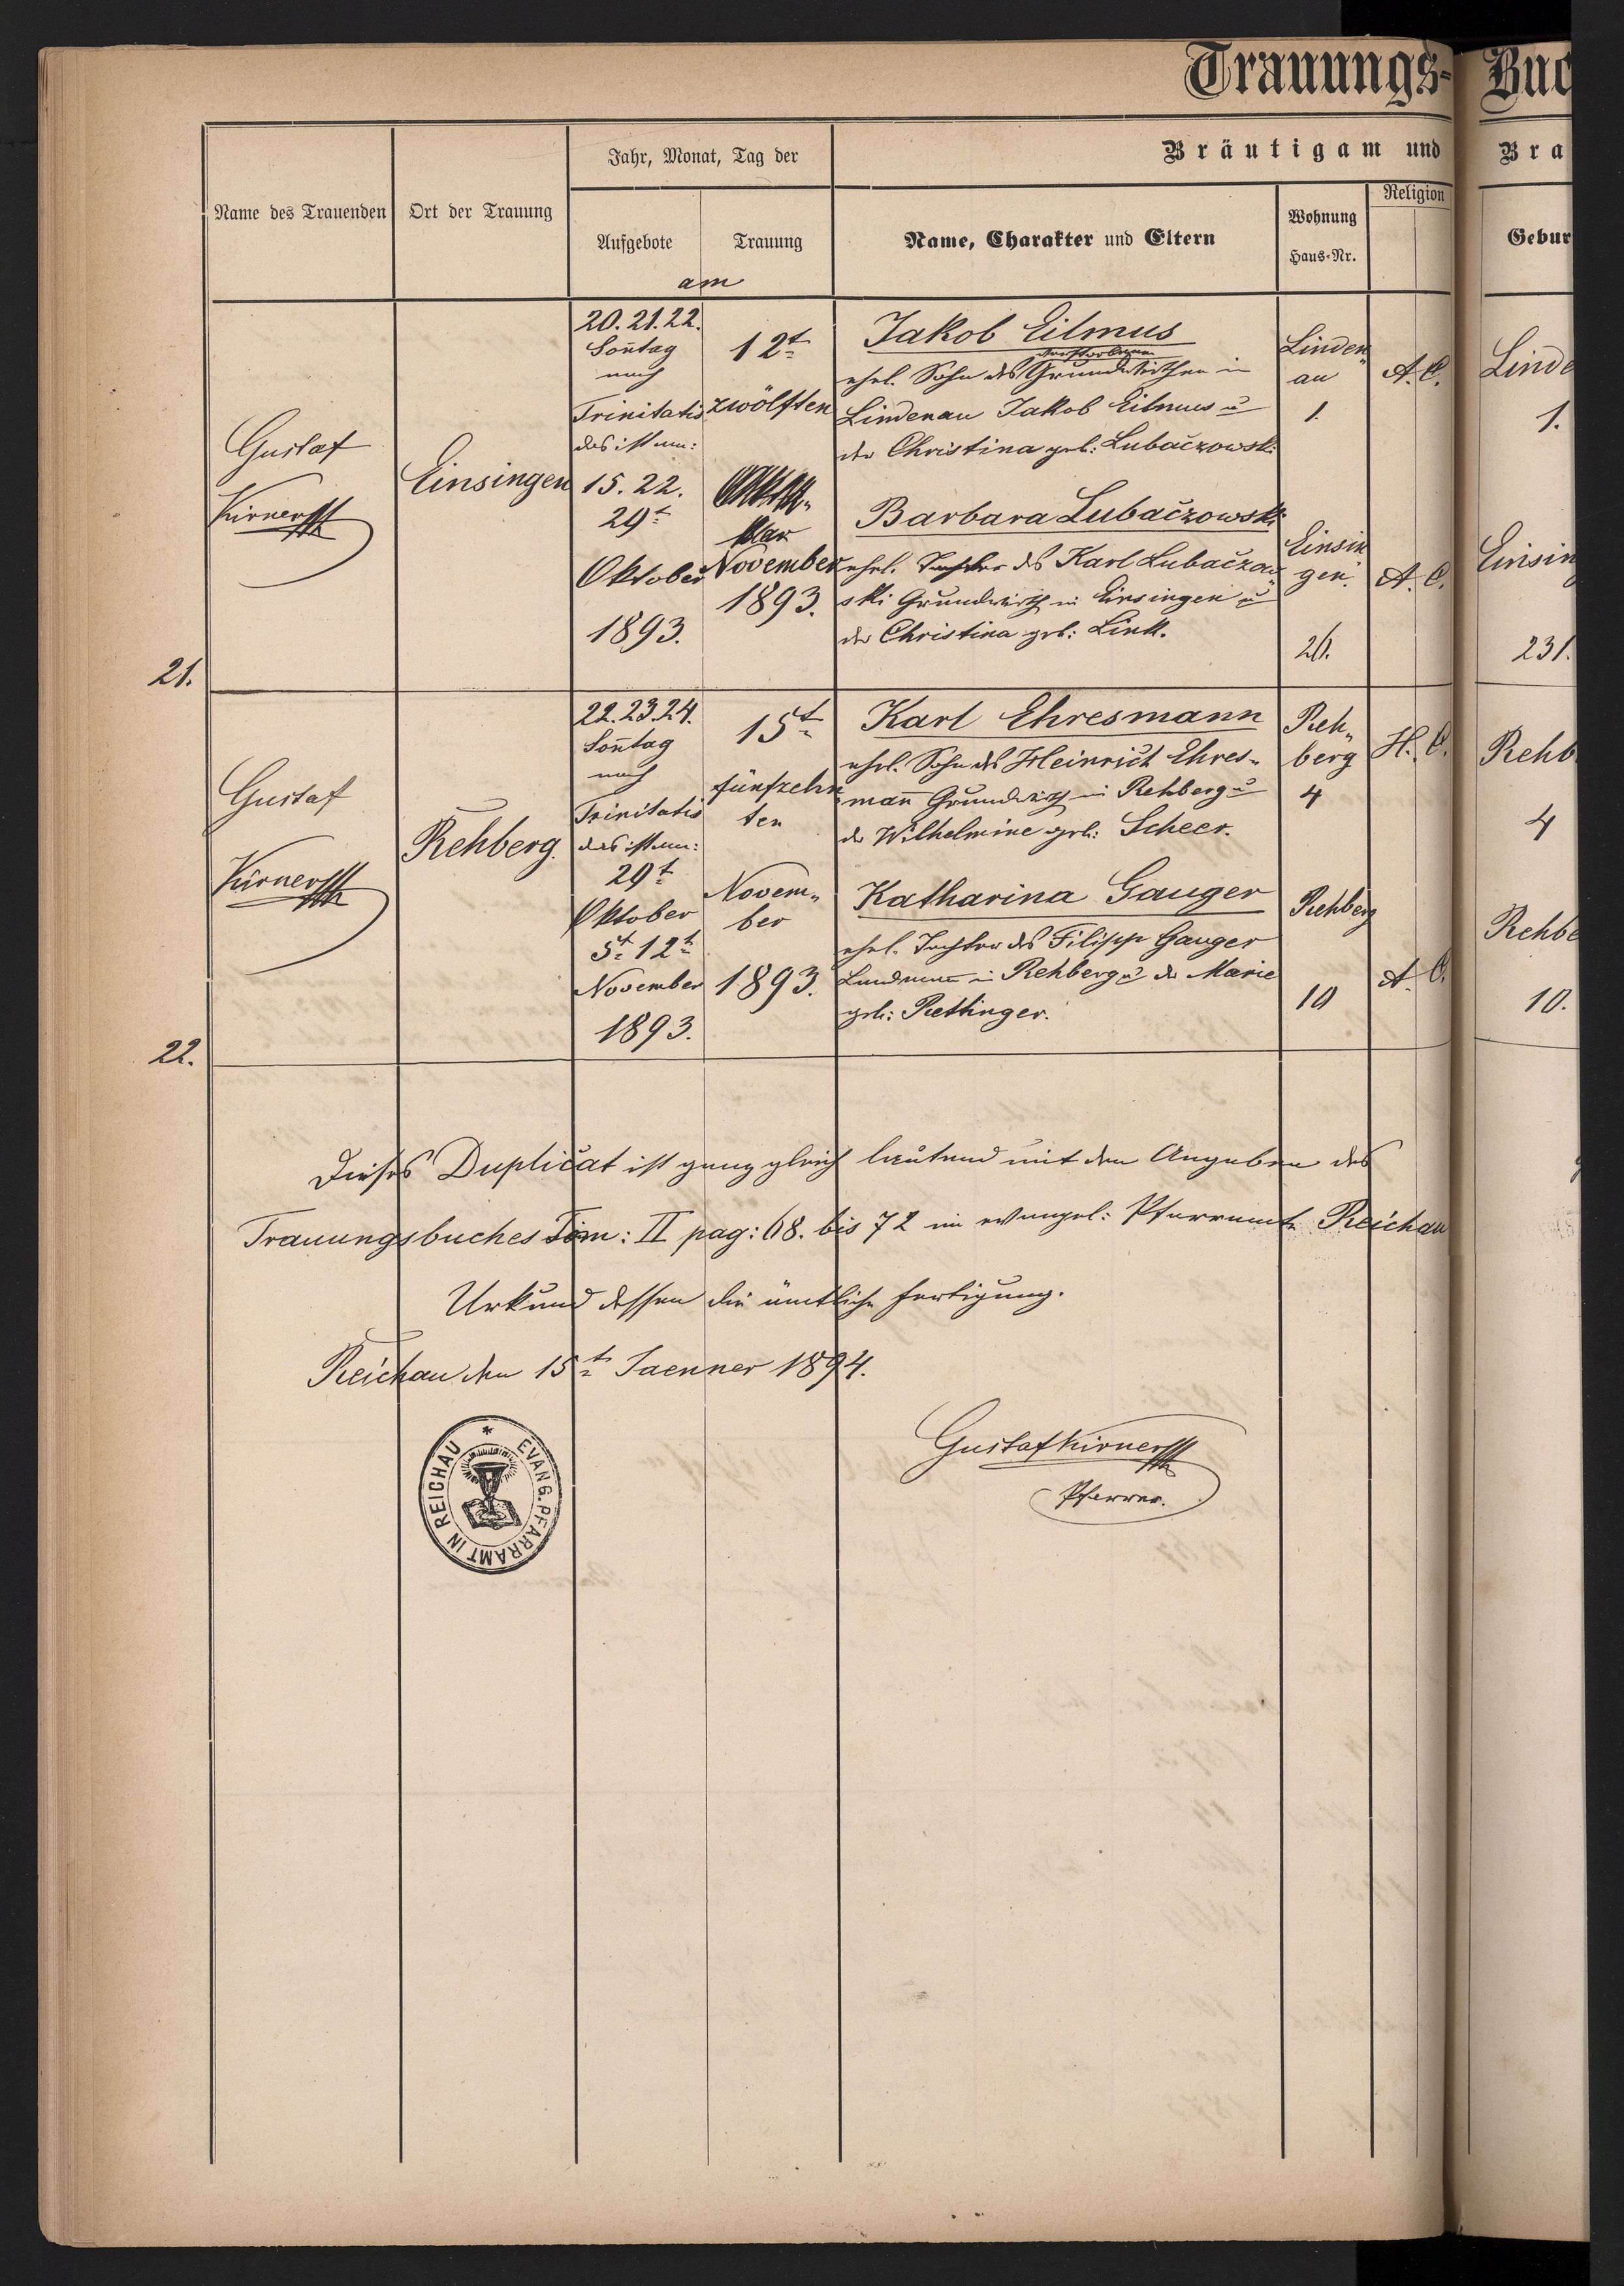 Trauungs-Buc
Bräutigam und Bra
Name des Trauenden
Ort der Trauung
Jahr, Monat, Tag der
Aufgebote
Trauung
am
Name, Charakter und Eltern
Wohnung
Haus-Nr.
Religion
Gebur
21.
Gustaf
Kirner
Einsingen
20. 21. 22.
Soñtag
nach
Trinitatis
das ist am:
15. 22.
29t
Oktober
1893.
12t
zwölften
November
1893.
Jakob Eilmus
verstorbenen
ehel. Sohn des Grundwirthen in
Lindenau Jakob Eilmus u
der Christina geb: Lubaczowski
Linden„
au
1.
A. C.
Linde
1.
Barbara Lubaczowski
ehel. Tochter des Karl Lubaczow„
ski Grundwirth in Einsingen u
der Christina geb: Link.
Einsin
gen.
26.
A. C.
Einsin
231.
22.
Gustaf
Kirner
Rehberg.
22. 23. 24.
Soñtag
nach
Trinitatis
das ist am:
29t
Oktober
5t 12t
November
1893.
15t
fünfzehn
ten
Novem„
ber
1893.
Karl Ehresmann
ehel. Sohn des Heinrich Ehres„
mañ Grundwirth in Rehberg u
der Wilhelmine geb: Scheer.
Reh„
berg
4
H. C.
Rehb
4
Katharina Gauger
ehel. Tochter des Filipp Gauger
Landmann in Rehberg u der Marie
geb: Rettinger.
Rehberg
10
A. C.
Rehbe
10.
Dieses Duplicat ist ganz gleich lautend mit den Angaben des
Trauungsbuches Tom: II pag: 68. bis 72 im evangel: Pfarramte Reichau
Urkund dessen die ämtliche Fertigung.
Reichau den 15t Jaenner 1894.
EVANG. PFARRAMT IN REICHAU *
Gustaf Kirner
Pfarrer.